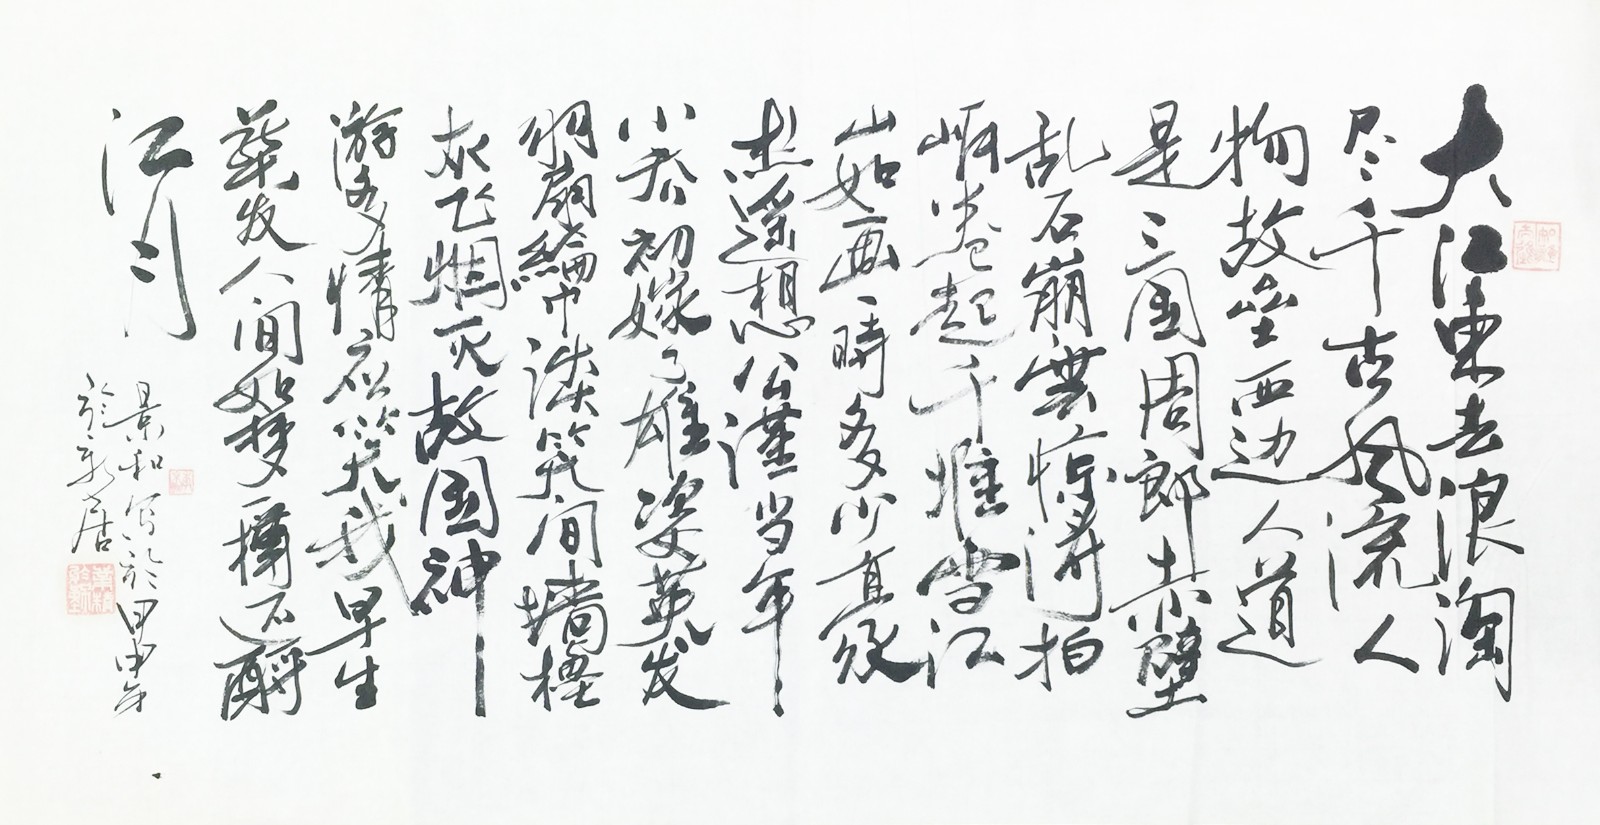 大江東去浪淘
尽千古风流人
物故垒西边人道
是三国周郎赤壁
乱石崩雲惊涛拍
岸卷起千堆雪江
山如画一時多少豪
杰遥想公瑾当年
小乔初嫁了雄姿英发
羽扇綸巾谈笑间墙橹
灰飞烟灭故国神
游多情应笑我早生
華发人间如梦一樽还酹
江月
景和写於甲申年
於新居